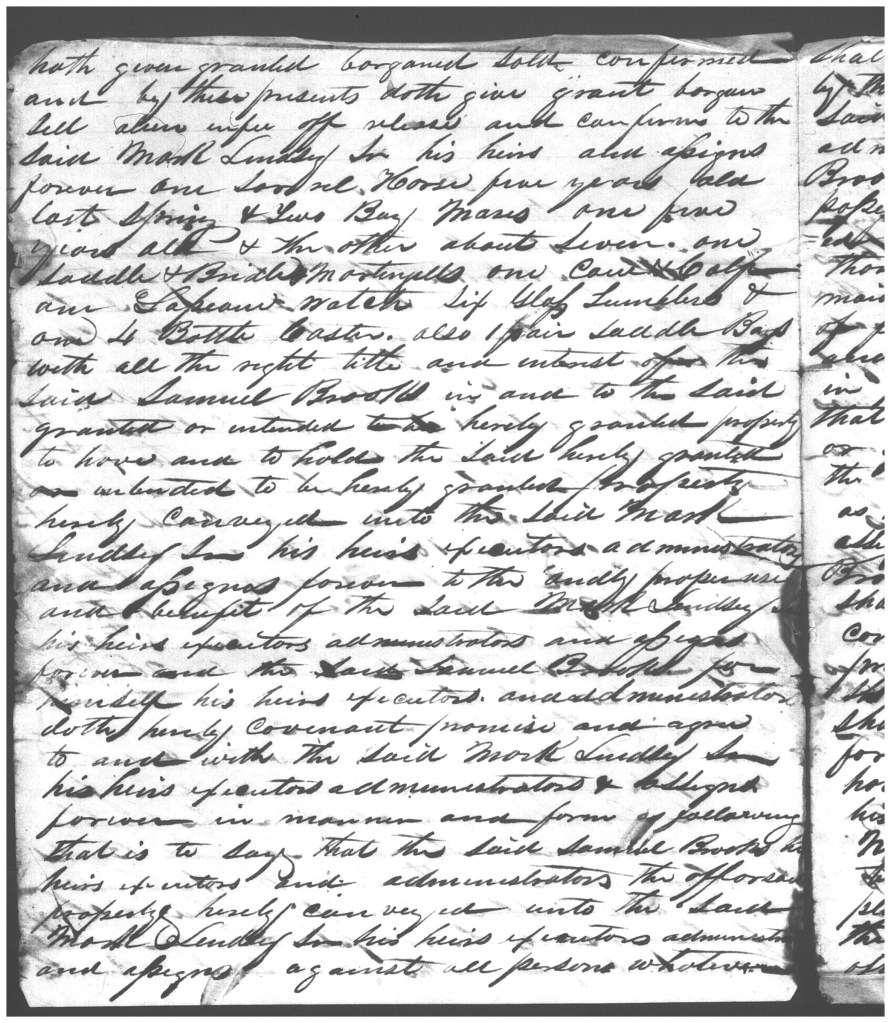 hath given granted barganed sold confirmed
and by these presents doth give grant bargan
sell alien enfee off release and confirms to the
said Mark Lindsey Sr his heirs and assigns
forever one Sorrel Horse five years old
last Spring & Two Bay Mares one five
years old & the other about Seven. one
Saddle & Bridle Martingills one Cow & Calf
one watch six Glass Tumblers &
one 4 Bottle Caster. also 1 pair Saddle Bags
with all the right title and interest of the
said Samuel Brooks in and to the said
granted or intended to be hereby granted property
to have and to hold the said hereby granted
or intended to be hereby granted property
hereby conveyed unto the said Mark
Lindsey Sr his heirs executors administrators
and assigns forever to the only proper use
and benefit of the said Mark Lindsey Sr
his heirs executors administrators and assigns
forever and the said Samuel Brooks for
himself his heirs executors and administrators
doth hereby covenant promise and agree
to and with the said Mark Lindsey Sr
his heirs executors administrators & assigns
forever in manner and form as following
that is to say that the said Samuel Brooks his
heirs executors and administrators the afforsaid
property hereby conveyed unto the said
Mark Lindsey Sr his heirs executors administrators
and assigns against all persons whatever
shall
by the
said
adm
Broo
posse
thou
in
that
or
the
as
Bro
sha
for
his
the